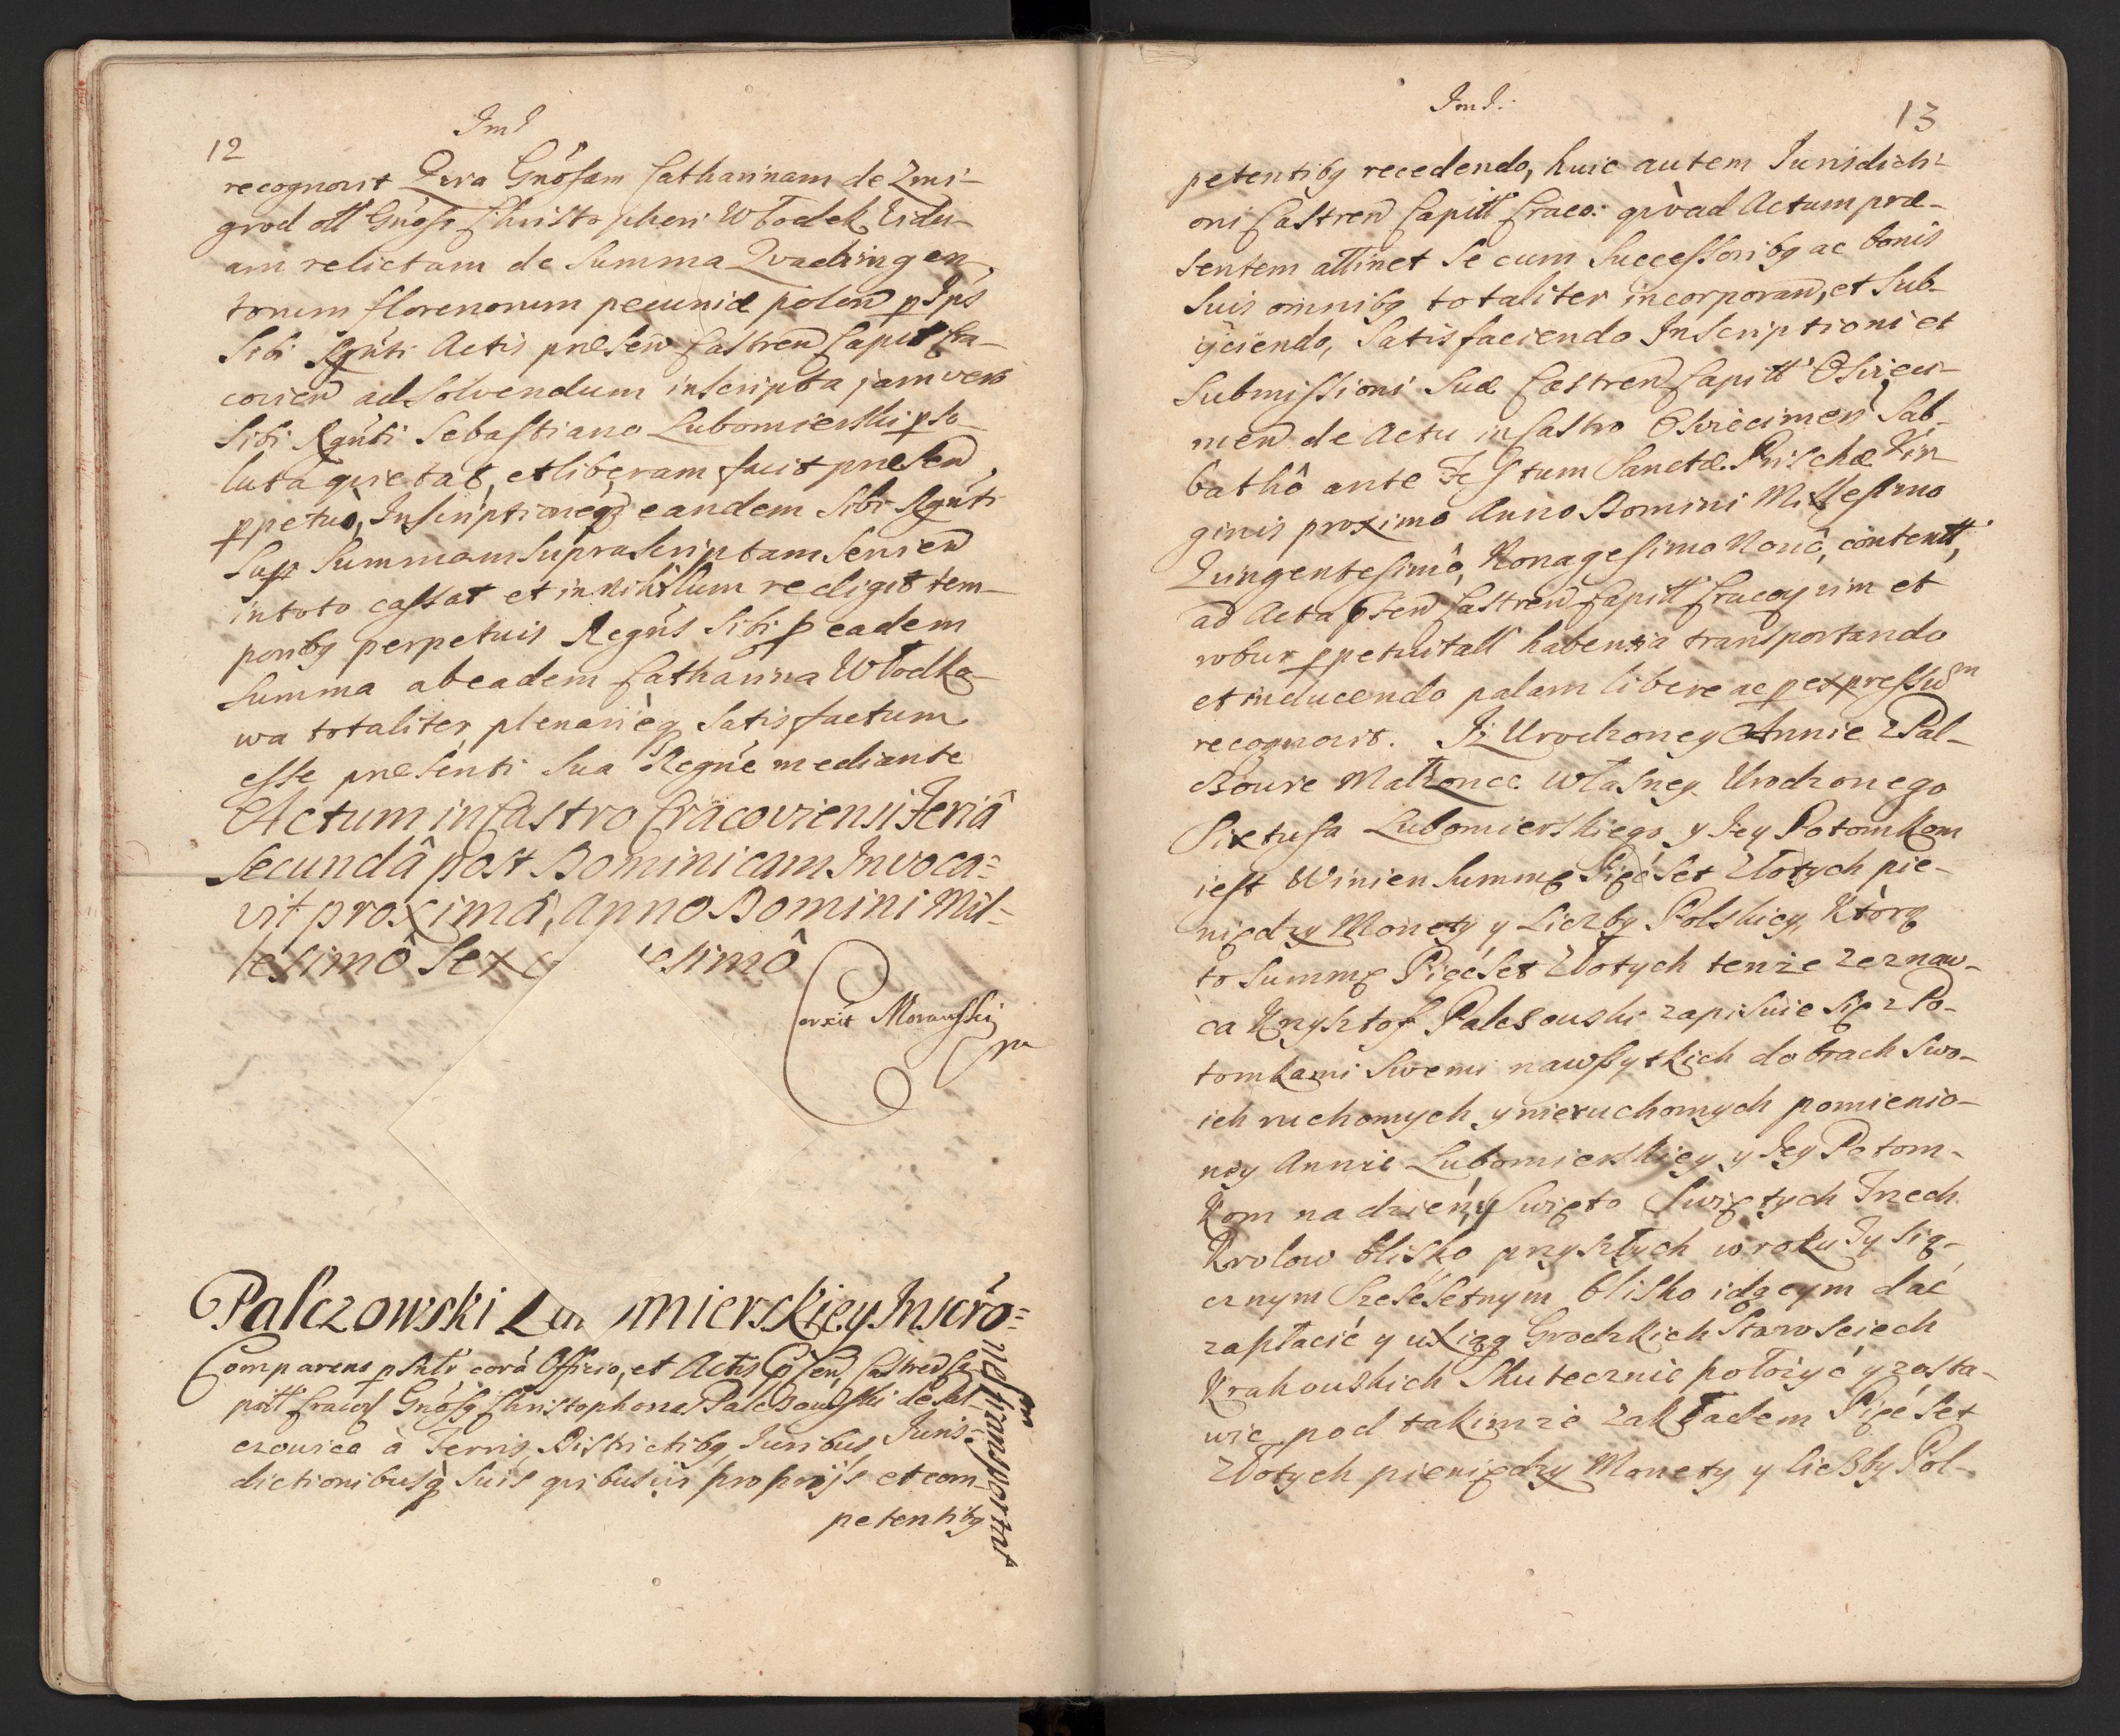 12
Ind
recognovit Quia Gnosam Catharinam de Zmi-
grod olî Gnosi Christopheri Włodek Vidu-
am relictam de Summa Quadringen-
torum florenorum pecuniæ polon p Ips
Sibi Rgnti Actis præsen Castren Capitt Cra-
covien ad solvendum inscripta jam vero
Sibi Rgnti Sebastiano Lubomierski p so-
luta quietat, et liberam facit præsen
ppetuo, Inscriptionéq eandem Sibi Rgnti
Sup Summam supra scriptam Servien
in toto cassat et in nihillum redigit tem-
poribq perpetuis Regńs Sibi p eadem
Summa ab eadem Catharina Włodko-
wa totaliter plenarièq Satisfactum
esse præsenti Sua Regńe mediante
Actum in Castro Cracoviensi Feriâ
Secundâ post Dominicam Invoca=
vit proximâ, Anno Domini Mil-
lesimô Sexc esimô
Correxit Morawski
mp
Palczowski Lu mierskiey Inscro=
nem transportat
Comparens psnltr corà Officio, et Actis Psen Castren Ca-
pitt Cracov Gnosq Christophorus Palczowski de Pal-
czowice à Terris, Districtibq, Juribus, Juris=
dictionibusq Suis quibusvis proprijs et com-
petentibq
Ind:
13
petentibq recedendo, huic autem Jurisdicti=
oni Castren Capitt Craco: quòad Actum præ-
sentem attinet Se cum Successoribq ac bonis
Suis omnibq totaliter incorporan, et Sub-
ÿciendo, Satisfaciendo Inscriptioni et
Submissioni Suæ Castren Capitt Oswiecι-
men de Actu in Castro Oswiecimen Sab-
bathô ante Festum Sanctæ Prischæ Vir-
ginis proximo Anno Domini Millesimo
Quingentesimô, Nonagesimo Nonô, contentt,
ad Acta Psen Castren Capitt Cracov vim et
robur ppetuitatt habentia transportando
et inducendo palam libere ac p expressum
recognovit. Iż Urodzoney Annie z Pal-
Bowic Małżonce własney Urodzonego
Sixtusa Lubomierskiego, y Jey Potomkom
iest Winien Summę Pięćset Złotych pie-
niędzy Monety y Liczby Polskiey, Którą
to Summę Pięćset Złotych tenże Zeznaw-
ca Krzysztof Palczowski zapisuie się z Po-
tomkami Swemi na wszytkich dobrach Swo-
ich ruchomych y nieruchomych pomienio-
ney Annie Lubomierskiey y Jey Potom-
Kom na dzień y Swięto Swiętych Trzech
Krolow blisko przyszłych w roku Tysią-
cznym Sześćsetnym blisko idącym dać
zapłacić y u Xiąg Grodzkich Starościech
Krakowskich Skutecznie położyć y zosta-
wic pod takimże Zakładem Pięćset
Złotych pieniędzy Monety y liczby Pol-